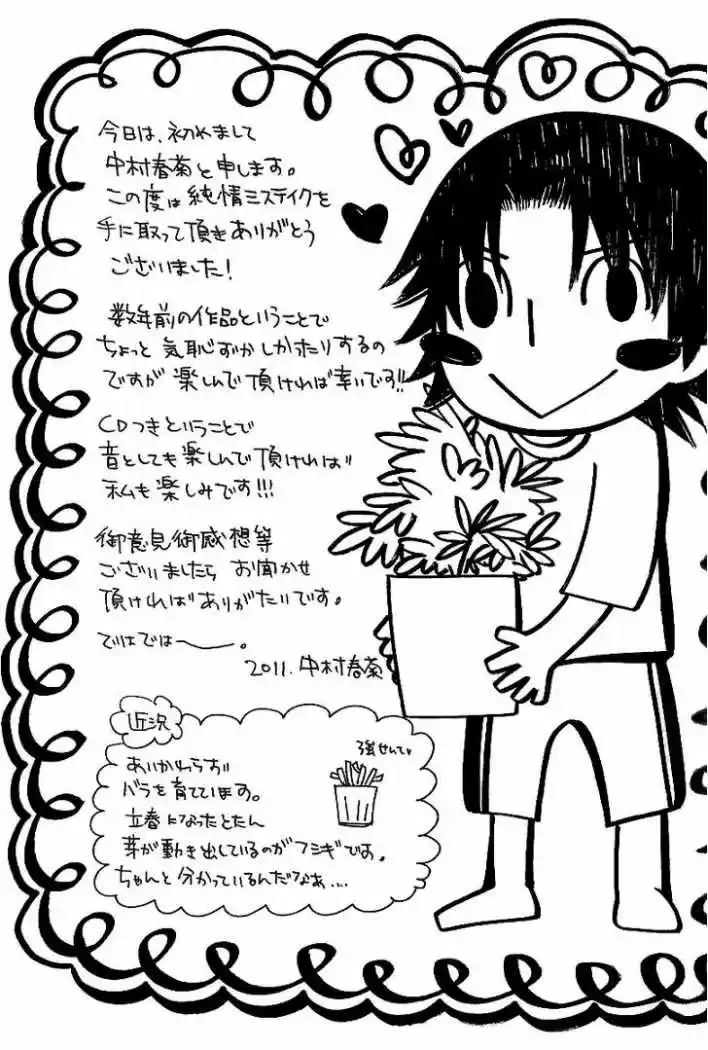 今日は、初めまして
中村春菊と申します。
この度は純情ミステイクを
手に取って頂きありがとう
ございました!
数年前の作品ということで
ちょっと気恥ずかしかったりするの
ですが楽しんで頂ければ幸いです!!
CDつきということで
音としても楽しんで頂ければ
私も楽しみです!!!
御意見御感想等
ございましたら お聞かせ
頂ければありがたいです。
ではでは――。
2011.中村春菊
近況
あいかわらず
バラを育てています。
立春になったとたん
芽が動き出しているのがフシギです。
ちゃんと分かっているんだなあ....